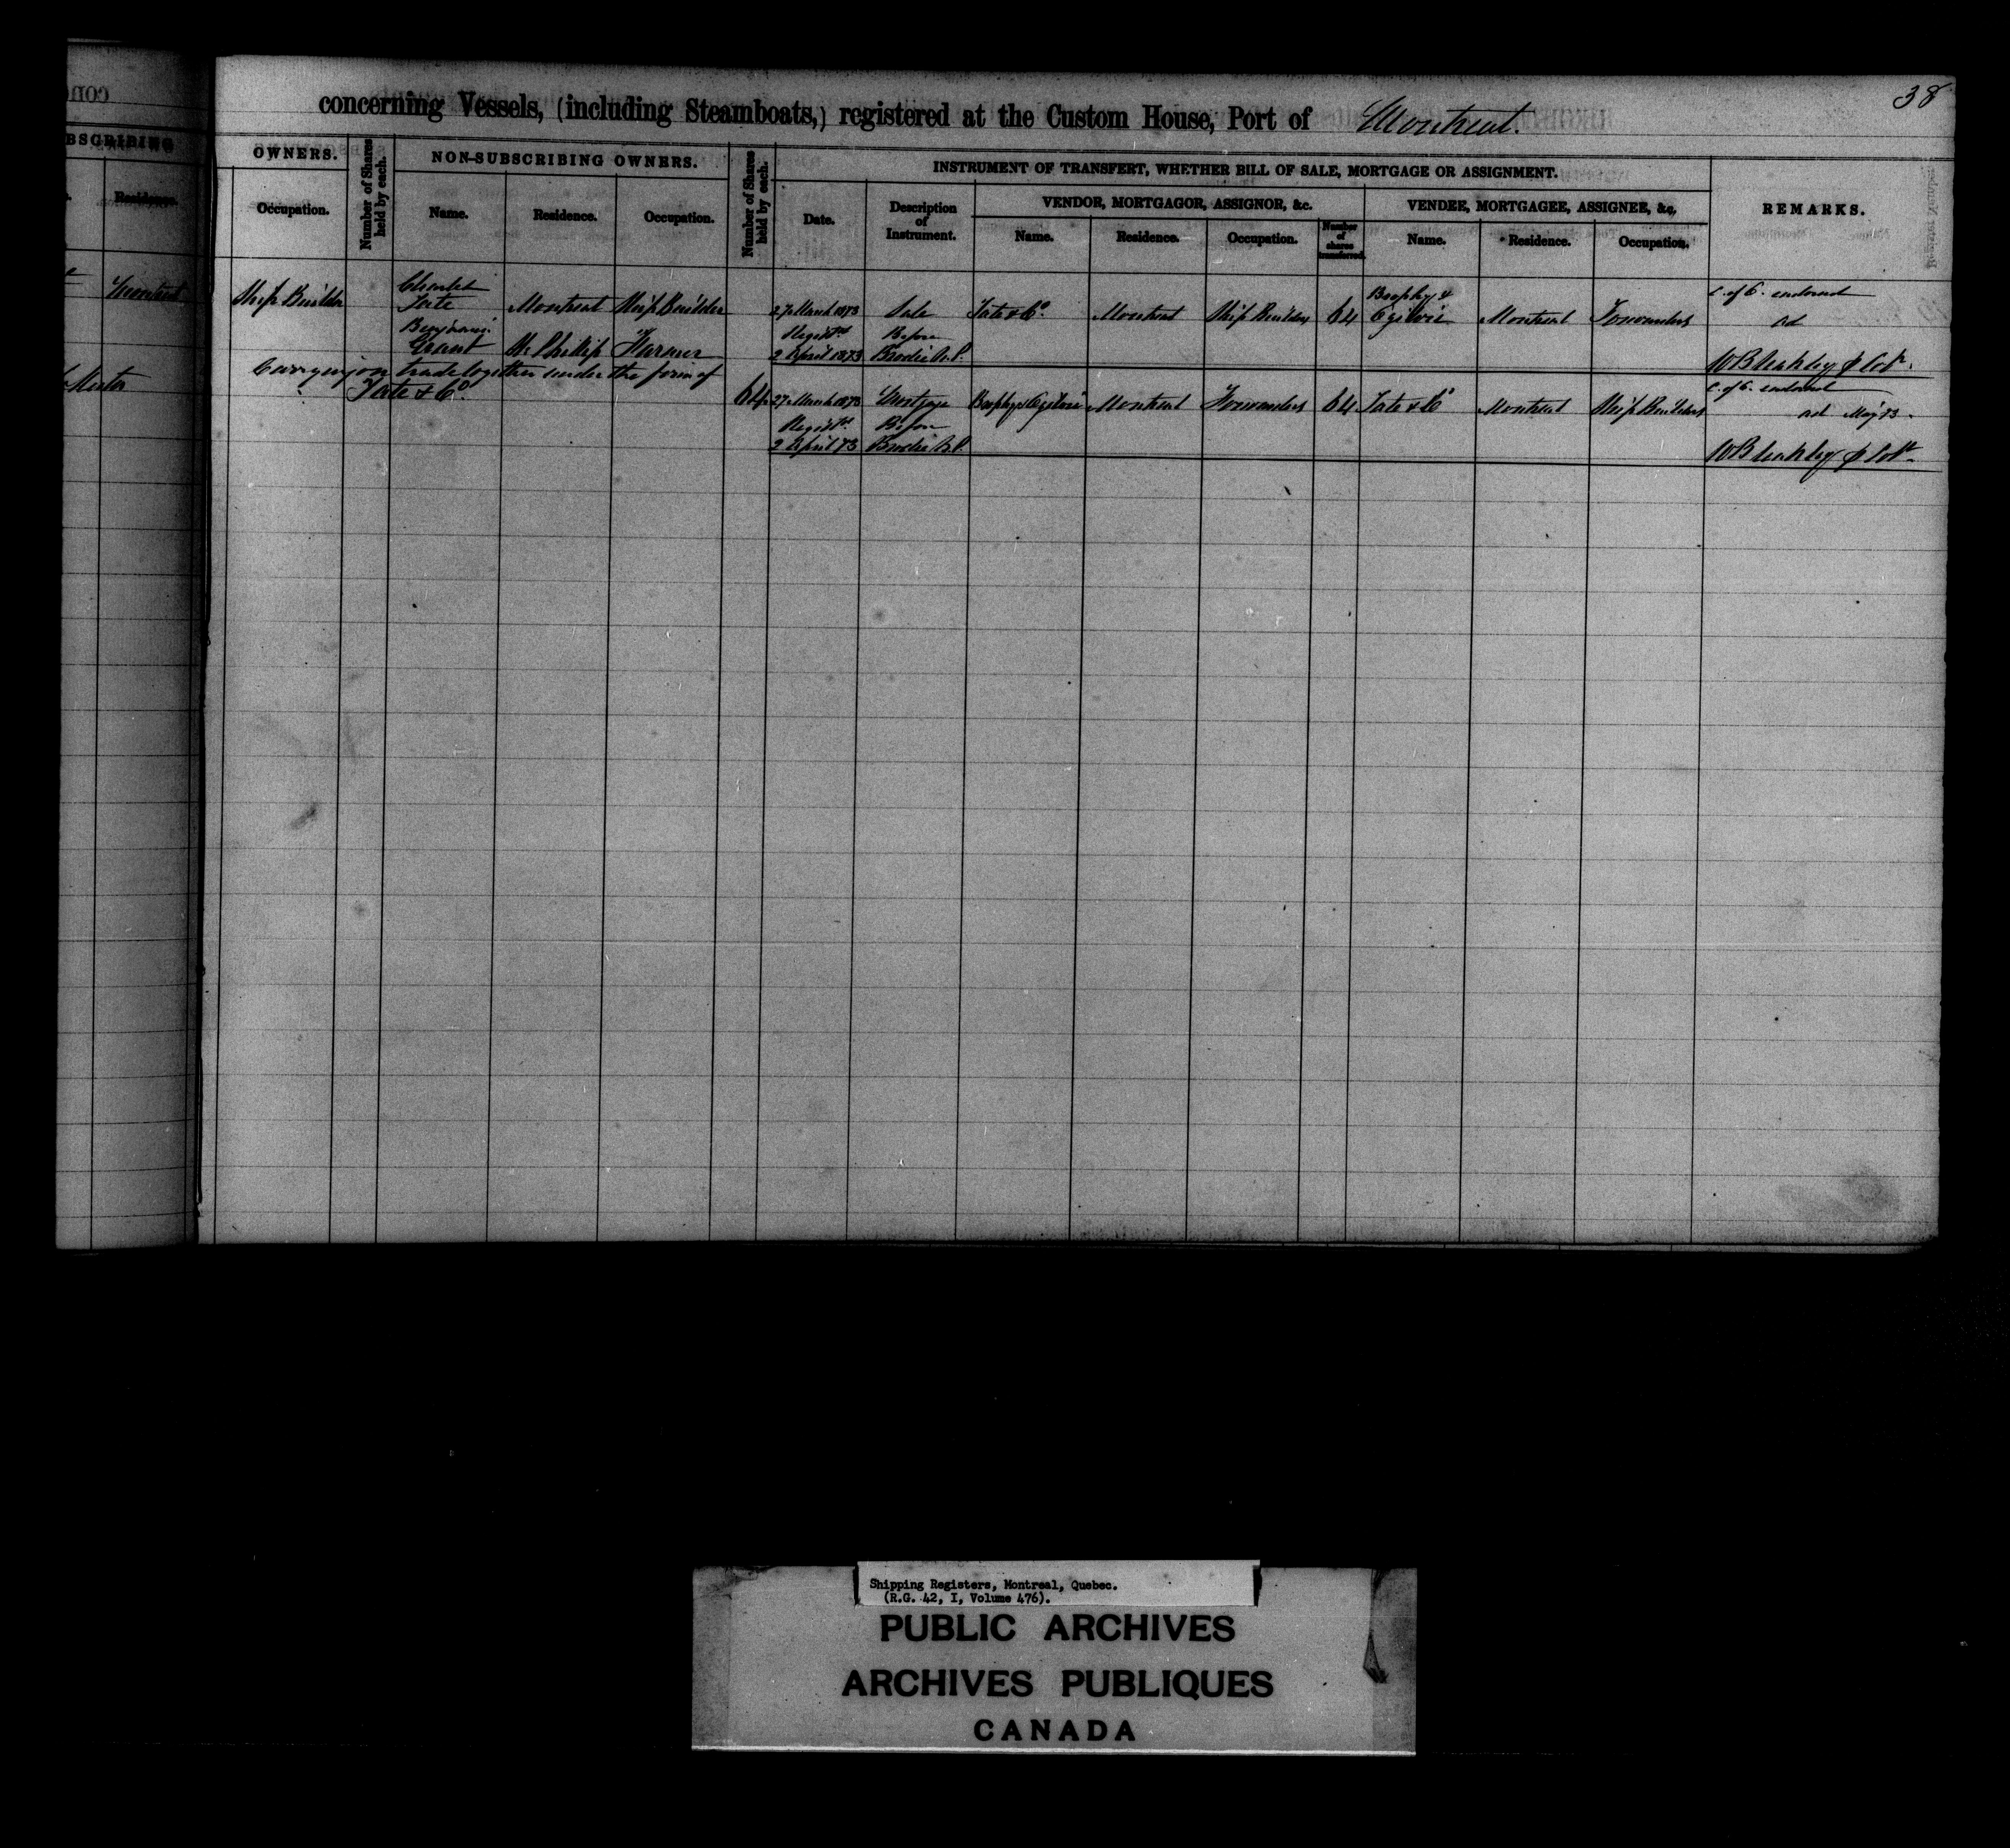 38
concerning Vessels, (including Steamboats,) registered at the Custom House, Port of Montreal.
OWNERS.
NON-SUBSCRIBING OWNERS.
INSTRUMENT OF TRANSFERT, WHETHER BILL OF SALE, MORTGAGE OR ASSIGNMENT.
VENDOR, MORTGAGOR, ASSIGNOR, &c.
VENDEE, MORTGAGEE, ASSIGNEE, &c.
REMARKS.
Residence.
Occupation.
Number of Shares held by each.
Name.
Residence.
Occupation.
Number of Shares held by each.
Date.
Description of Instrument.
Name.
Residence.
Occupation.
Number of shares transferred.
Name.
Residence.
Occupation.
Montreal Ship Builder
Charles
Tate Montreal Ship Builder
Benjamin
Grant St Phillip Farmer
Carrying on trade together under the form of
Tate & Co. 64
27 March 1873 Sale Tate & Co. Montreal Ship Builders 64 Brophy & Ogilvie Montreal Forwarders C. of O. endorsed
Registd Before
2 April 1873 Brodie N.P.
W Bleakley
27 March 1873 Mortgage Brophy & Ogilvie Montreal Forwarders 64 Tate & Co Montreal Ship Builders C. of O. endorsed
Registd Before
2 April 73 Brodie N.P.
W Bleakley
Shipping Registers, Montreal, Quebec.
(R.G. 42, I, Volume 476).
PUBLIC ARCHIVES
ARCHIVES PUBLIQUES
CANADA